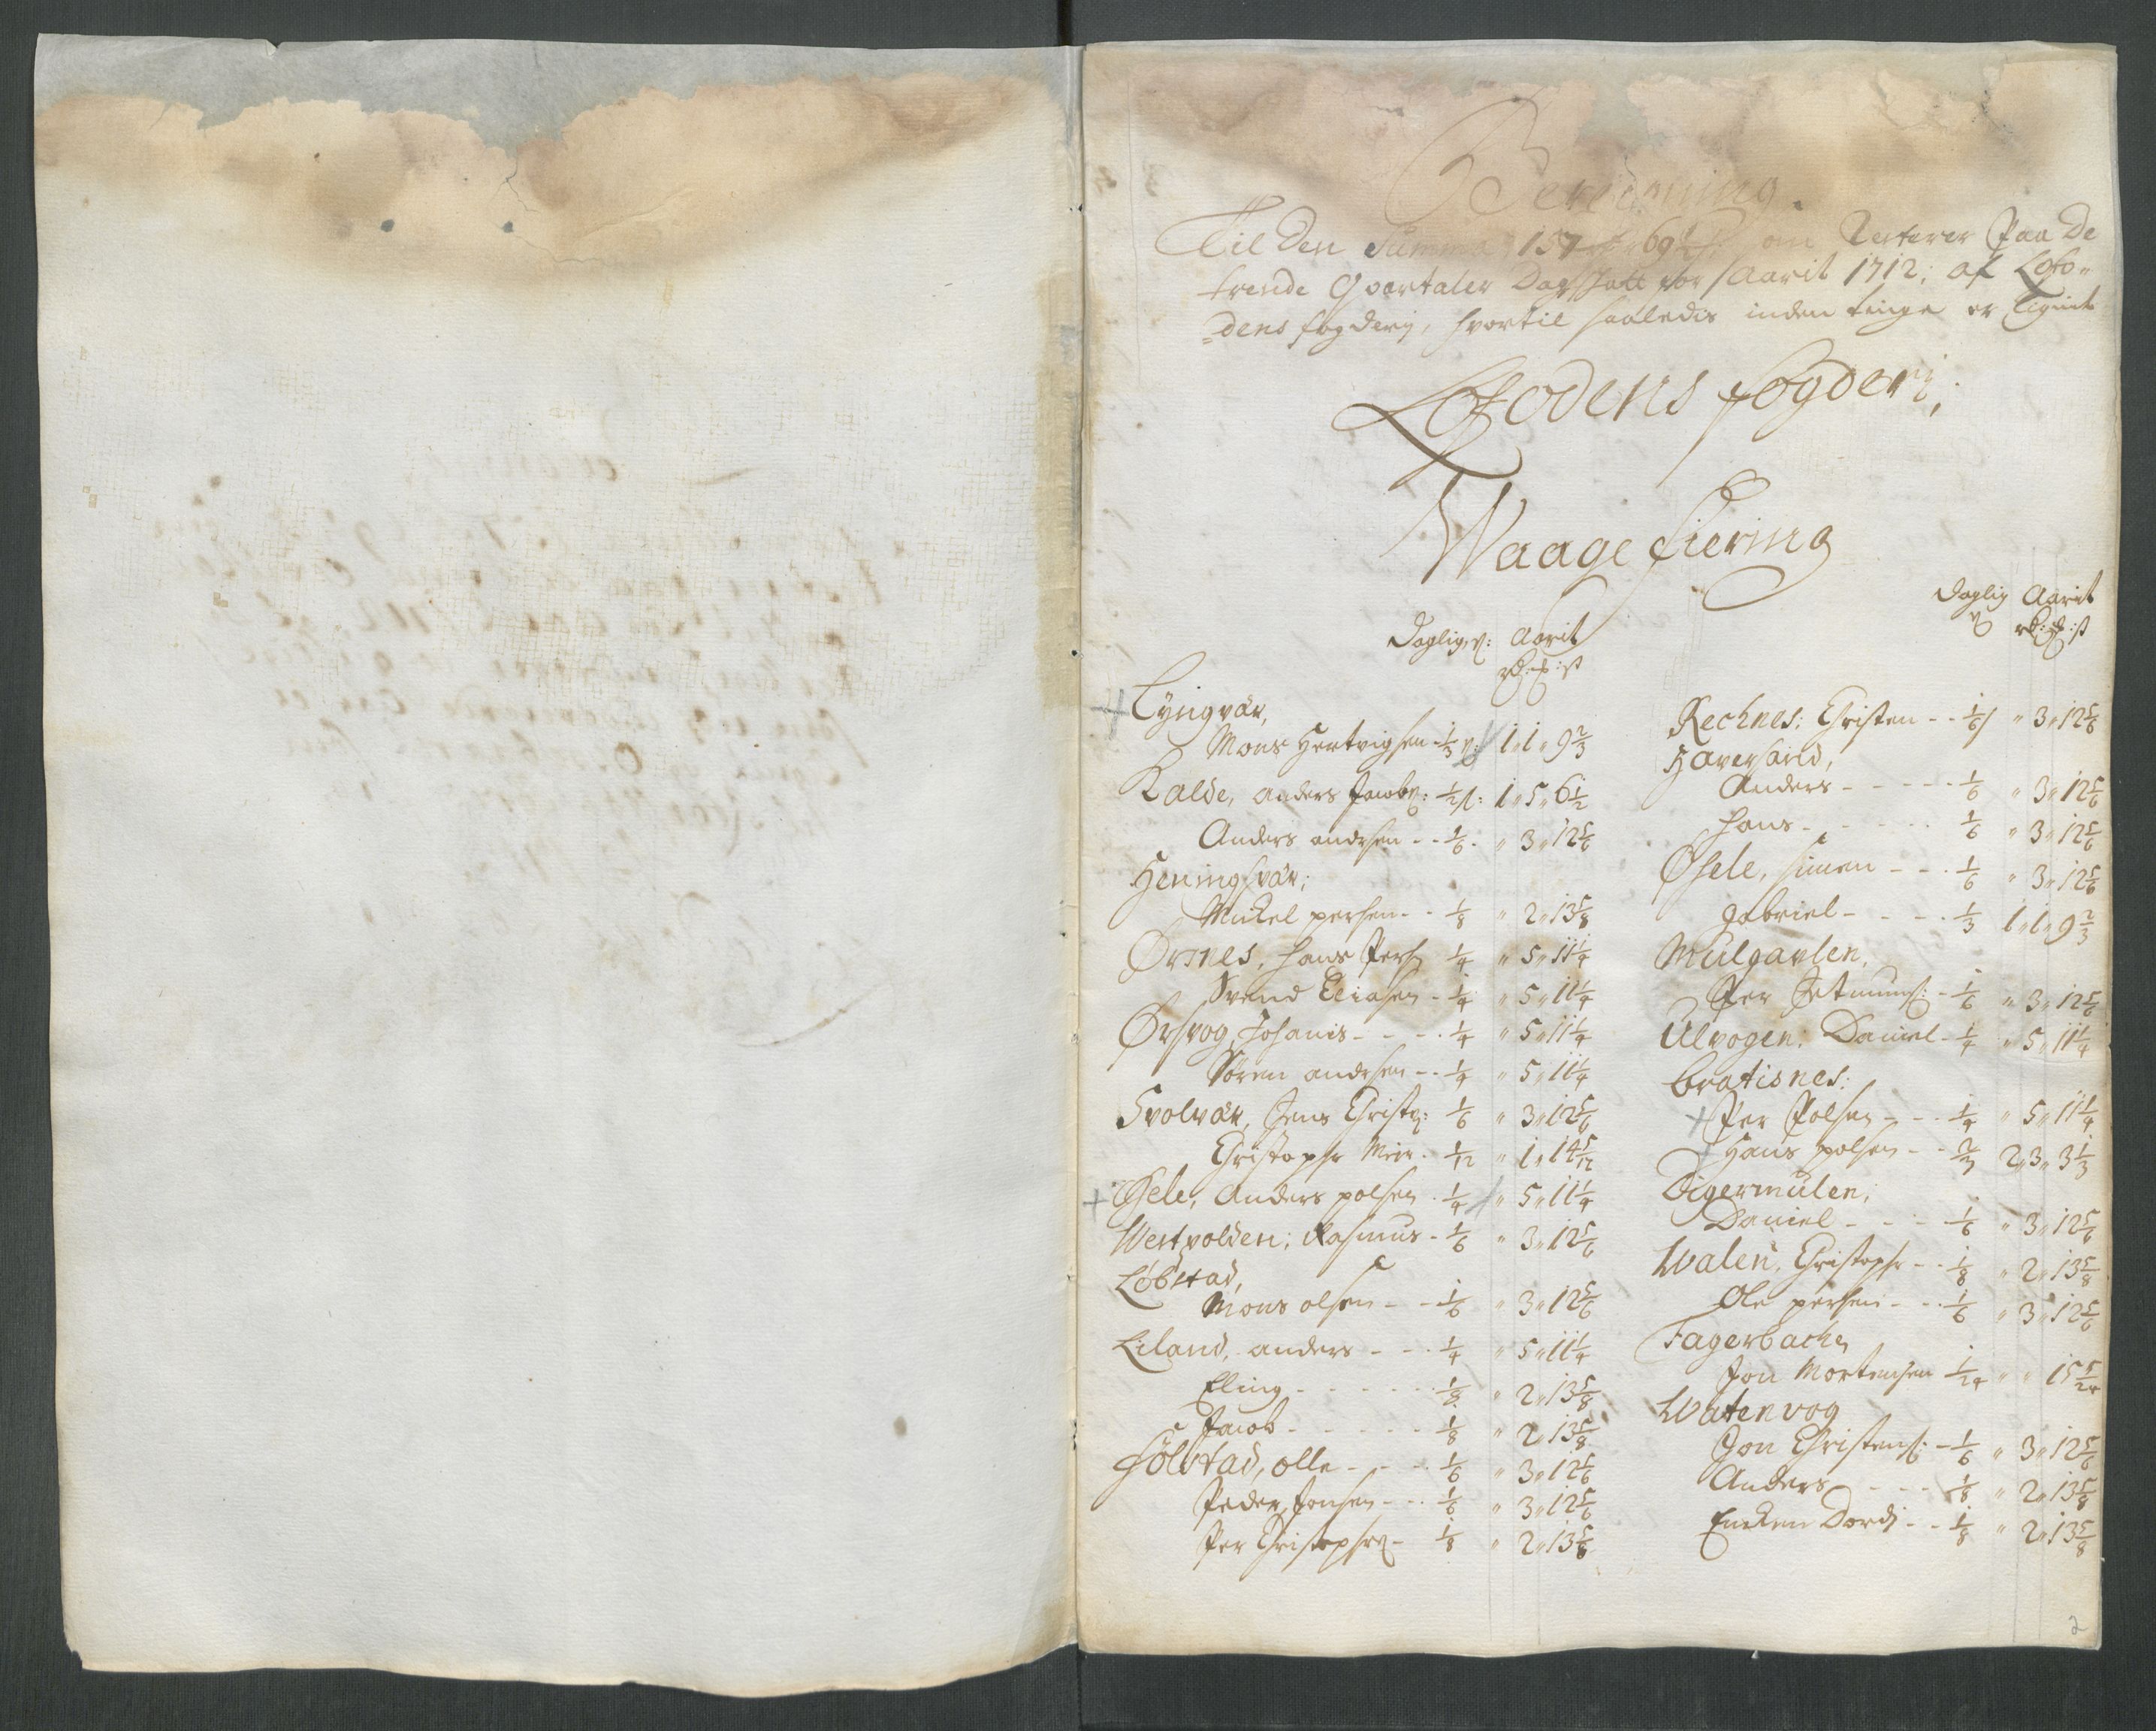 Beregning.
Til den Summa 157 69½ om Resterer Paa De
trende Qvartaler Dagskatt for Aarit 1712; af Lofo-
dens fogderj, hvortil saaledis inden tinge er lignit
Lofodens fogderj;
Waage fiering
Daglig, s: Aarit
rd: ort: s
Lyngvær,
Mons Hertvigsen ⅓ s: 1 „ 1 „ 9⅔
Kalde, anders Jacobs: ½ s: 1 „ 5 „ 6½
Anders andersen - - ⅙ - „ 3 „ 12⅚
Heningsvær;
Mickel persen - - ⅛ „ 2 „ 13⅝
Ørsnes, hans Pers ¼ „ 5 „ 11¼
Svend Eliasen - ¼ „ 5 „ 11¼
Ørsvog, Johanis - - - - ¼ „ 5 „ 11¼
Søren andersen - - ¼ „ 5 „ 11¼
Svolvær, Jens Christs: ⅙ „ 3 „ 12⅚
Christopher Meyer - 1/12 „ 1 „ 14 5/12
Øsele, Anders polsen - ¼ „ 5 „ 11¼
Westpolden; Rasmus - ⅙ „ 3 „ 12⅚
Løbstad,
Mons olsen - - ⅙ „ 3 „ 12⅚
Liland, anders - - - ¼ „ 5 „ 11¼
Eling - - - - - - ⅛ „ 2 „ 13⅝
Jacob - - - - - - ⅛ „ 2 „ 13⅝
Hølstad, olle - - - - ⅙ „ 3 „ 12⅚
Peder Jonsen - - - ⅙ „ 3 „ 12⅚
Per Christophers - ⅛ „ 2 „ 13⅝
Daglig Aarit
s rd: ort: s
Rechnes: Christen - - ⅙ s „ 3 „ 12⅚
Haversand,
Anders - - - - - ⅙ „ 3 „ 12⅚
Hans - - - - - - ⅙ „ 3 „ 12⅚
Øhele, simen - - - ⅙ „ 3 „ 12⅚
gabriel - - - - - ⅓ 1 „ 1 „ 9⅔
Mulgavlen,
Per Jetmunds: - ⅙ „ 3 „ 12⅚
Ulvogen: Daniel - ¼ „ 5 „ 11¼
bratisnes:
Per Polsen - - - ¼ „ 5 „ 11¼
Hans polsen - - ⅔ 2 „ 3 „ 3⅓
Digermulen;
Daniel - - - - ⅙ „ 3 „ 12⅚
Walen, Christopher - - ⅛ „ 2 „ 13⅝
Ole persen - - - ⅙ „ 3 „ 12⅚
Fagerbachen
Jon Mortensen 1/24 „ „ 15 5/24
Watenvog
Jon Christens: - ⅙ „ 3 „ 12⅚
Anders - - - - ⅛ „ 2 „ 13⅝
Encken Dordj - - ⅛ „ 2 „ 13⅝
2